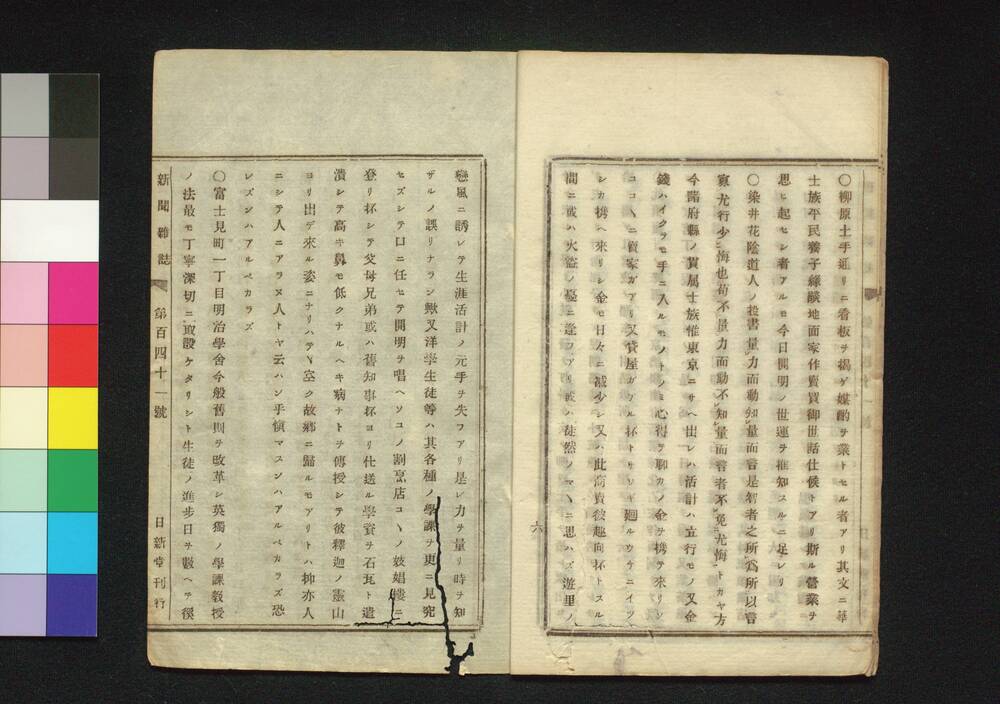 〇柳原土手通リニ看板ヲ揭ゲ媒酌ヲ業トセル者アリ其文ニ華
士族平民養子緣談地面家作賣買御世話仕候トアリ斯ル營業ヲ
思ヒ起セシ者アルモ今日開明ノ世運ヲ推知スルニ足レリ
〇染井花陰道人ノ投書量力而動知量而言是智者之所爲所以言
寡尤行少悔也苟不量力而動不知量而言者不免尤悔トカヤ方
今諸府縣ノ貫属士族惟東京ニサヘ出レハ活計ハ立行モノ又金
錢ハイクラモ手ニ入ルモノトノミ心得ヲ聊カノ金ヲ携テ來リシ
ココヽニ賣家ガアリ又貸屋ガアル杯トサワギ廻ルウケニイツ
シカ携ヘ來リシ金モ日々ニ减少シ又ハ此商賣彼趣向杯トスル
間ニ或ハ火盗ノ憂ニ逢フアリ或ハ徒然ノマヽニ思ハズ遊里ノ
六
戀風ニ誘レテ生涯活計ノ元手ヲ失フアリ是レ力ヲ量リ時ヲ知
ザルノ誤リナラン歟又洋學生徒等ハ其各種ノ學課ヲ更ニ見究
セズシテ口ニ任セテ開明ヲ唱ヘソコノ割烹店コヽノ妓娼樓ニ
登リ杯シテ父母兄弟或ハ舊知事杯ヨリ仕送ル學資ヲ石瓦ト遣
潰シテ高キ鼻モ低クナルヘキ病ナトヲ傳授シテ彼釋迦ノ靈山
ヨリ出デ來ル姿ニナリハテヽ空ク故郷ニ歸ルモアリトハ抑亦人
ニシテ人ニアラヌ人トヤ云ハン乎愼マスンハアルベカラズ恐
レズンハアルベカラズ
〇富士見町一丁目明治學舍今般舊則ヲ改革シ英獨ノ學課敎授
ノ法最モ丁寧深切ニ取設ケタリシト生徒ノ進歩日ヲ數ヘテ徯
新聞雜誌 第百四十一號 日新堂刊行